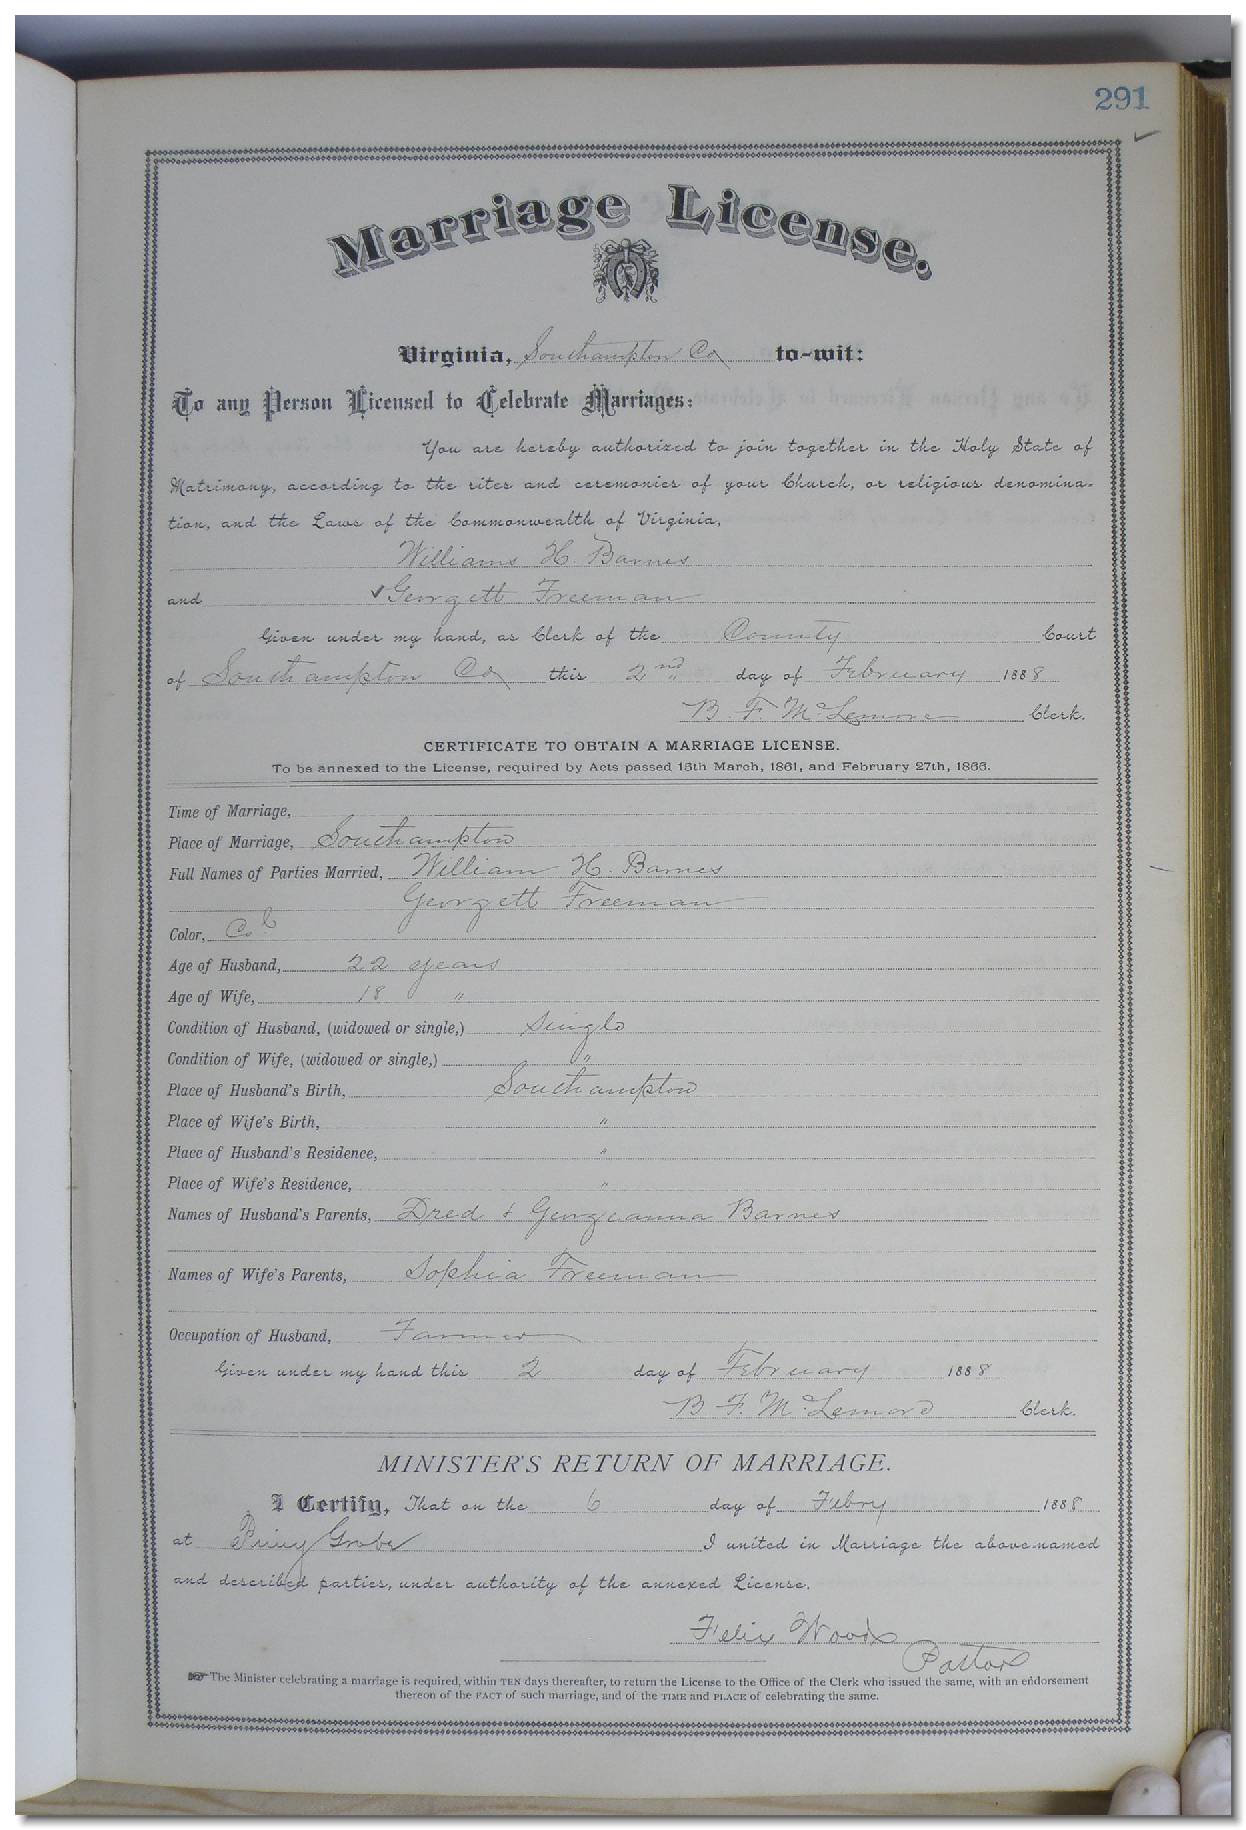 291
Marriage License.
Virginia, Southampton Co to-wit:
To any Person Licensed to Celebrate Marriages:
You are hereby authorized to join together in the Holy State of
Matrimony, according to the rites and ceremonies of your Church, or religious denomina-
tion, and the Laws of the Commonwealth of Virginia,
Williams H. Barnes
and Georgett Freeman
Given under my hand, as Clerk of the County Court
of Southampton Co this 2nd day of February 1888
B. F. McLemore Clerk.
CERTIFICATE TO OBTAIN A MARRIAGE LICENSE.
To be annexed to the License, required by Acts passed 15th March, 1861, and February 27th, 1866.
Time of Marriage,
Place of Marriage, Southampton
Full Names of Parties Married, William H. Barnes
Georgett Freeman
Color, Col
Age of Husband, 22 years
Age of Wife, 18 "
Condition of Husband, (widowed or single,) Single
Condition of Wife, (widowed or single,) "
Place of Husband's Birth, Southampton
Place of Wife's Birth, "
Place of Husband's Residence, "
Place of Wife's Residence, "
Names of Husband's Parents, Dred & Georgeanna Barnes
Names of Wife's Parents, Sophia Freeman
Occupation of Husband, Farmer
Given under my hand this 2 day of February 1888
B. F. McLemore Clerk.
MINISTER'S RETURN OF MARRIAGE.
I Certify, That on the 6 day of Febry 1888
at Piny Grobe I united in Marriage the above-named
and described parties, under authority of the annexed License.
Felix Woods
Pastor
The Minister celebrating a marriage is required, within TEN days thereafter, to return the License to the Office of the Clerk who issued the same, with an endorsement
thereon of the FACT of such marriage, and of the TIME and PLACE of celebrating the same.